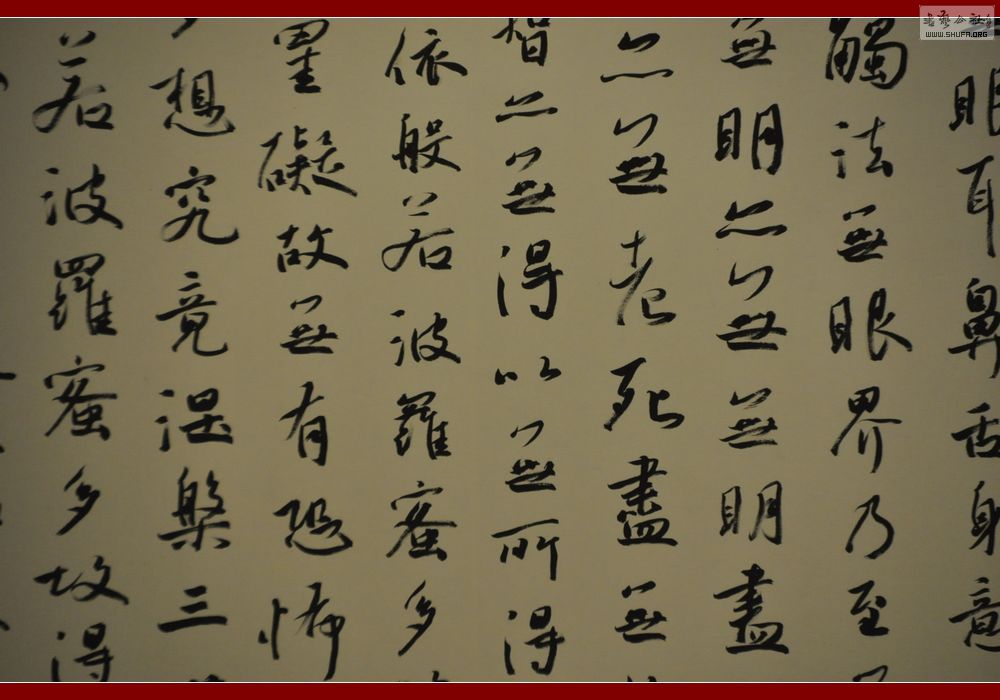 眼耳鼻舌身意
觸法無眼界乃至
無明亦無無明盡
亦無老死盡無
智亦無得以無所得
依般若波羅蜜多
罣礙故無有恐怖
想究竟涅槃三
若波羅蜜多故得
書藝公社
WWW.SHUFA.ORG